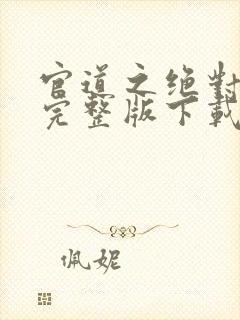 官道之绝对
完整版下载
佩妮